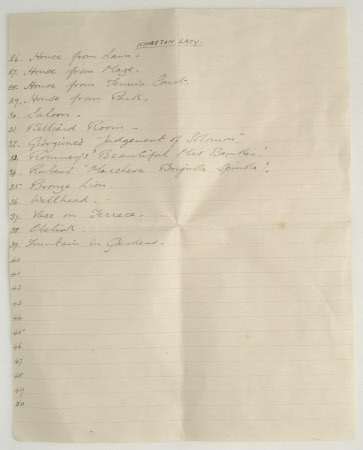 KINGSTON LACY.
26. House from Lawn.
27. House from Maze.
28. House from Tennis Court.
29. House from Park.
30. Saloon.
31. Billiard Room.
32. Giorgione's "Judgement of Solomon"
33. Romney's "Beautiful Mrs Bankes."
34. Rubens' "Marchesa Brigida Spinola"
35. Bronze Lion.
36. Wellhead.
37. Vase on Terrace.
38. Obelisk.
39. Fountain in Gardens.
40
41
42
43
44
45
46
47
48
49
50